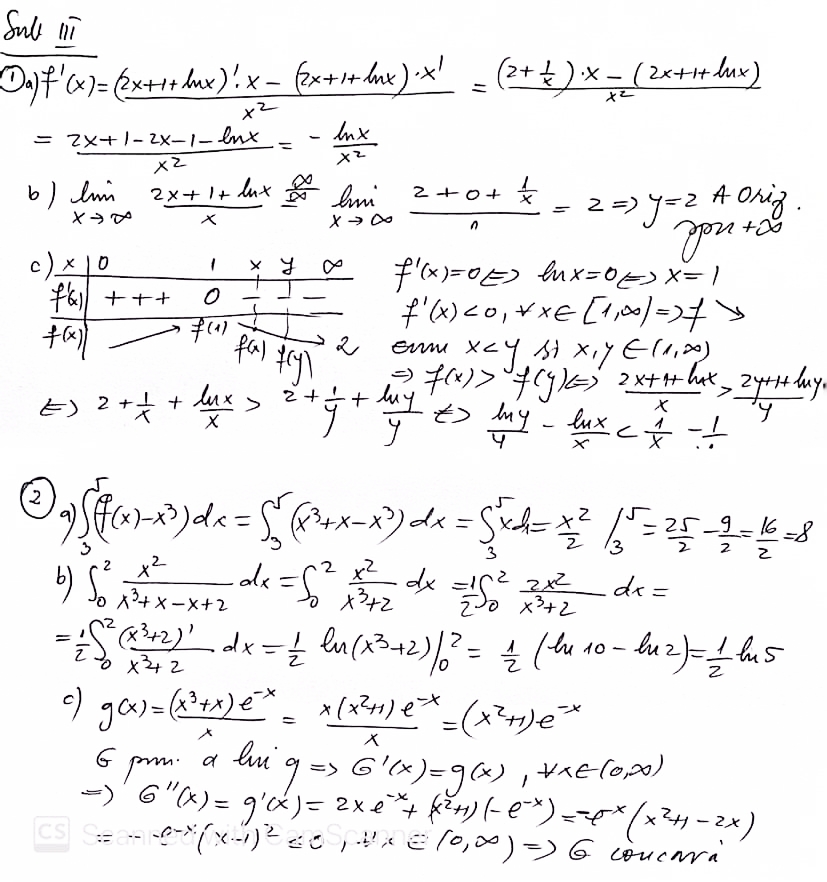 Sub III
① a) f'(x) = (2x+1+lnx)'.x - (2x+1+lnx).x' / x² = (2+1/x).x - (2x+1+lnx) / x²
= 2x+1-2x-1-lnx / x² = - lnx / x²
b) lim x→∞ 2x+1+lnx / x ∞/∞ = lim x→∞ 2+0+1/x / 1 = 2 => y=2 A Oriz.
spre +∞
c) x | 0 1 x y ∞ f'(x)=0 <=> lnx=0 <=> x=1
f'(x) | +++ 0 - - - f'(x)<0, ∀x∈[1,∞) => f ↘
f(x) | → f(1) f(x) f(y) 2 cum x<y și x,y∈(1,∞)
=> f(x) > f(y) <=> 2x+1+lnx / x > 2y+1+lny / y
<=> 2 + 1/x + lnx/x > 2 + 1/y + lny/y <=> lny/y - lnx/x < 1/x - 1/y
② a) ∫₃⁵ (f(x)-x³)dx = ∫₃⁵ (x³+x-x³)dx = ∫₃⁵ xdx = x²/2 |₃⁵ = 25/2 - 9/2 = 16/2 = 8
b) ∫₀² x² / x³+x-x+2 dx = ∫₀² x² / x³+2 dx = 1/2 ∫₀² 2x² / x³+2 dx =
= 1/2 ∫₀² (x³+2)' / x³+2 dx = 1/2 ln(x³+2)|₀² = 1/2 (ln 10 - ln 2) = 1/2 ln 5
c) g(x) = (x³+x)e⁻ˣ / x = x(x²+1)e⁻ˣ / x = (x²+1)e⁻ˣ
G prim. a lui g => G'(x)=g(x), ∀x∈(0,∞)
=> G''(x) = g'(x) = 2xe⁻ˣ + (x²+1)(-e⁻ˣ) = -e⁻ˣ(x²+1-2x)
= -e⁻ˣ(x-1)² ≤0, ∀x∈(0,∞) => G concavă
CS Scanned with CamScanner